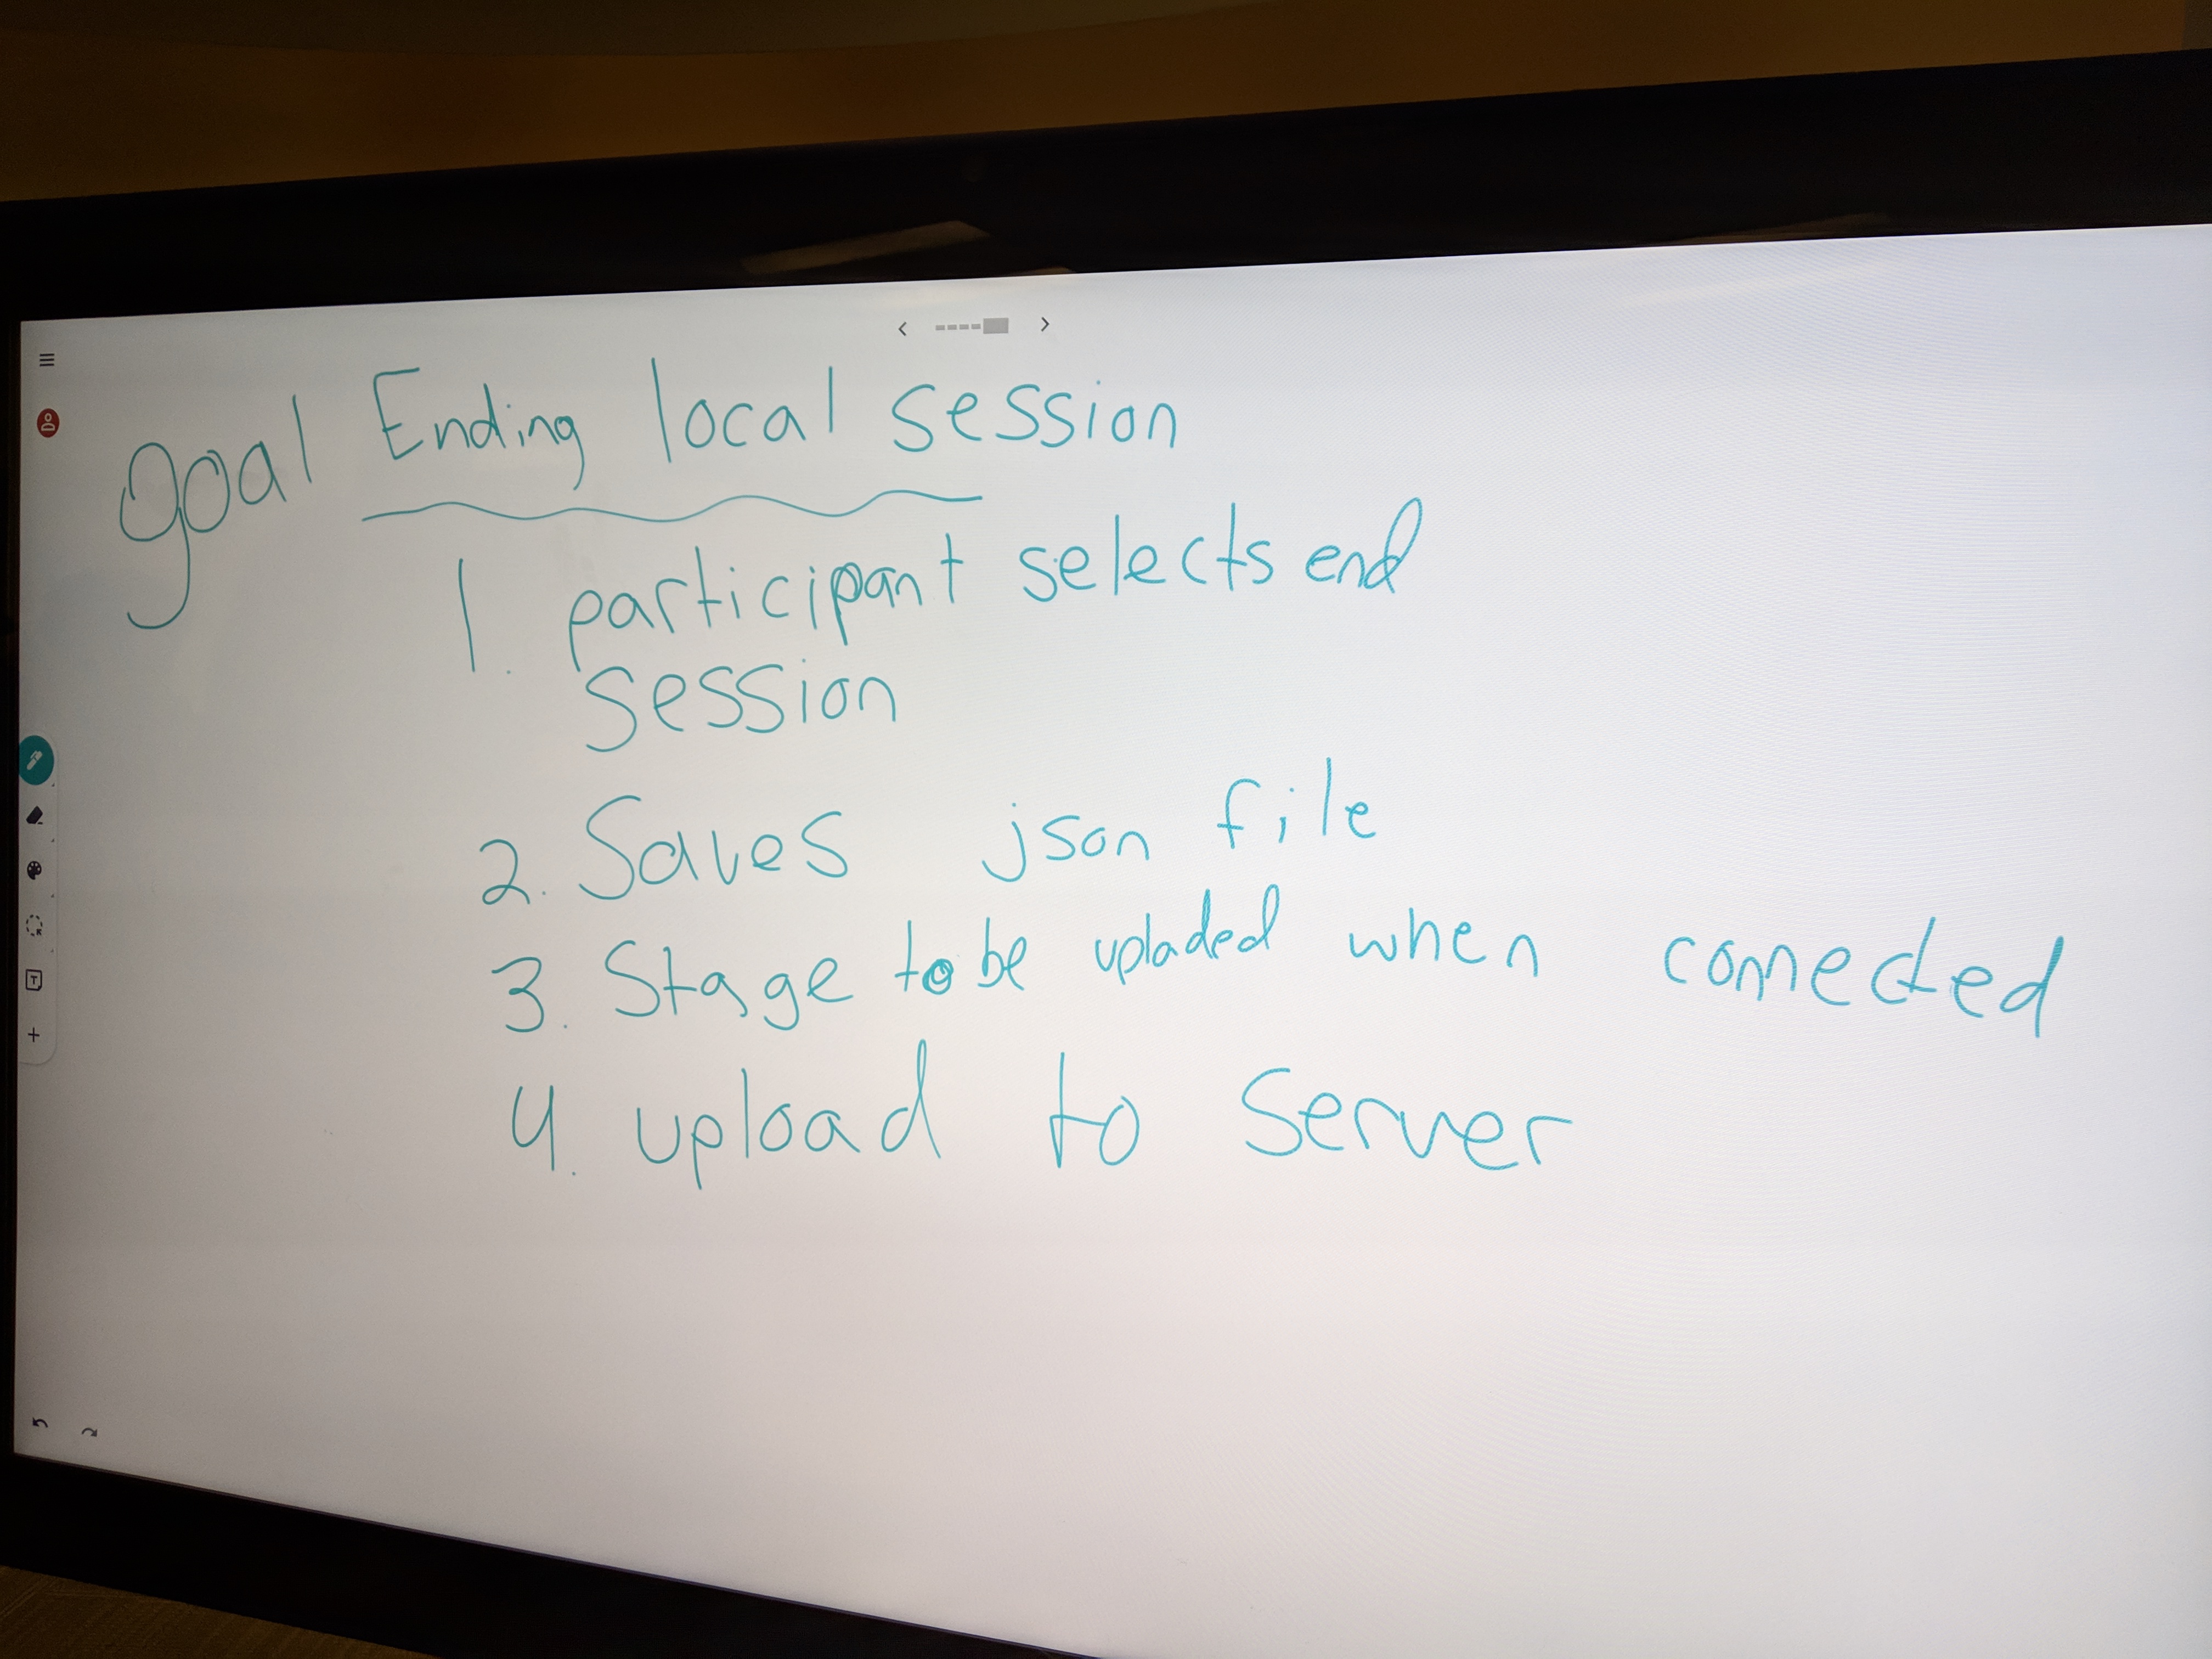 goal Ending local session
1. participant selects end
session
2. Saves json file
3. Stage to be uploaded when connected
4. upload to server